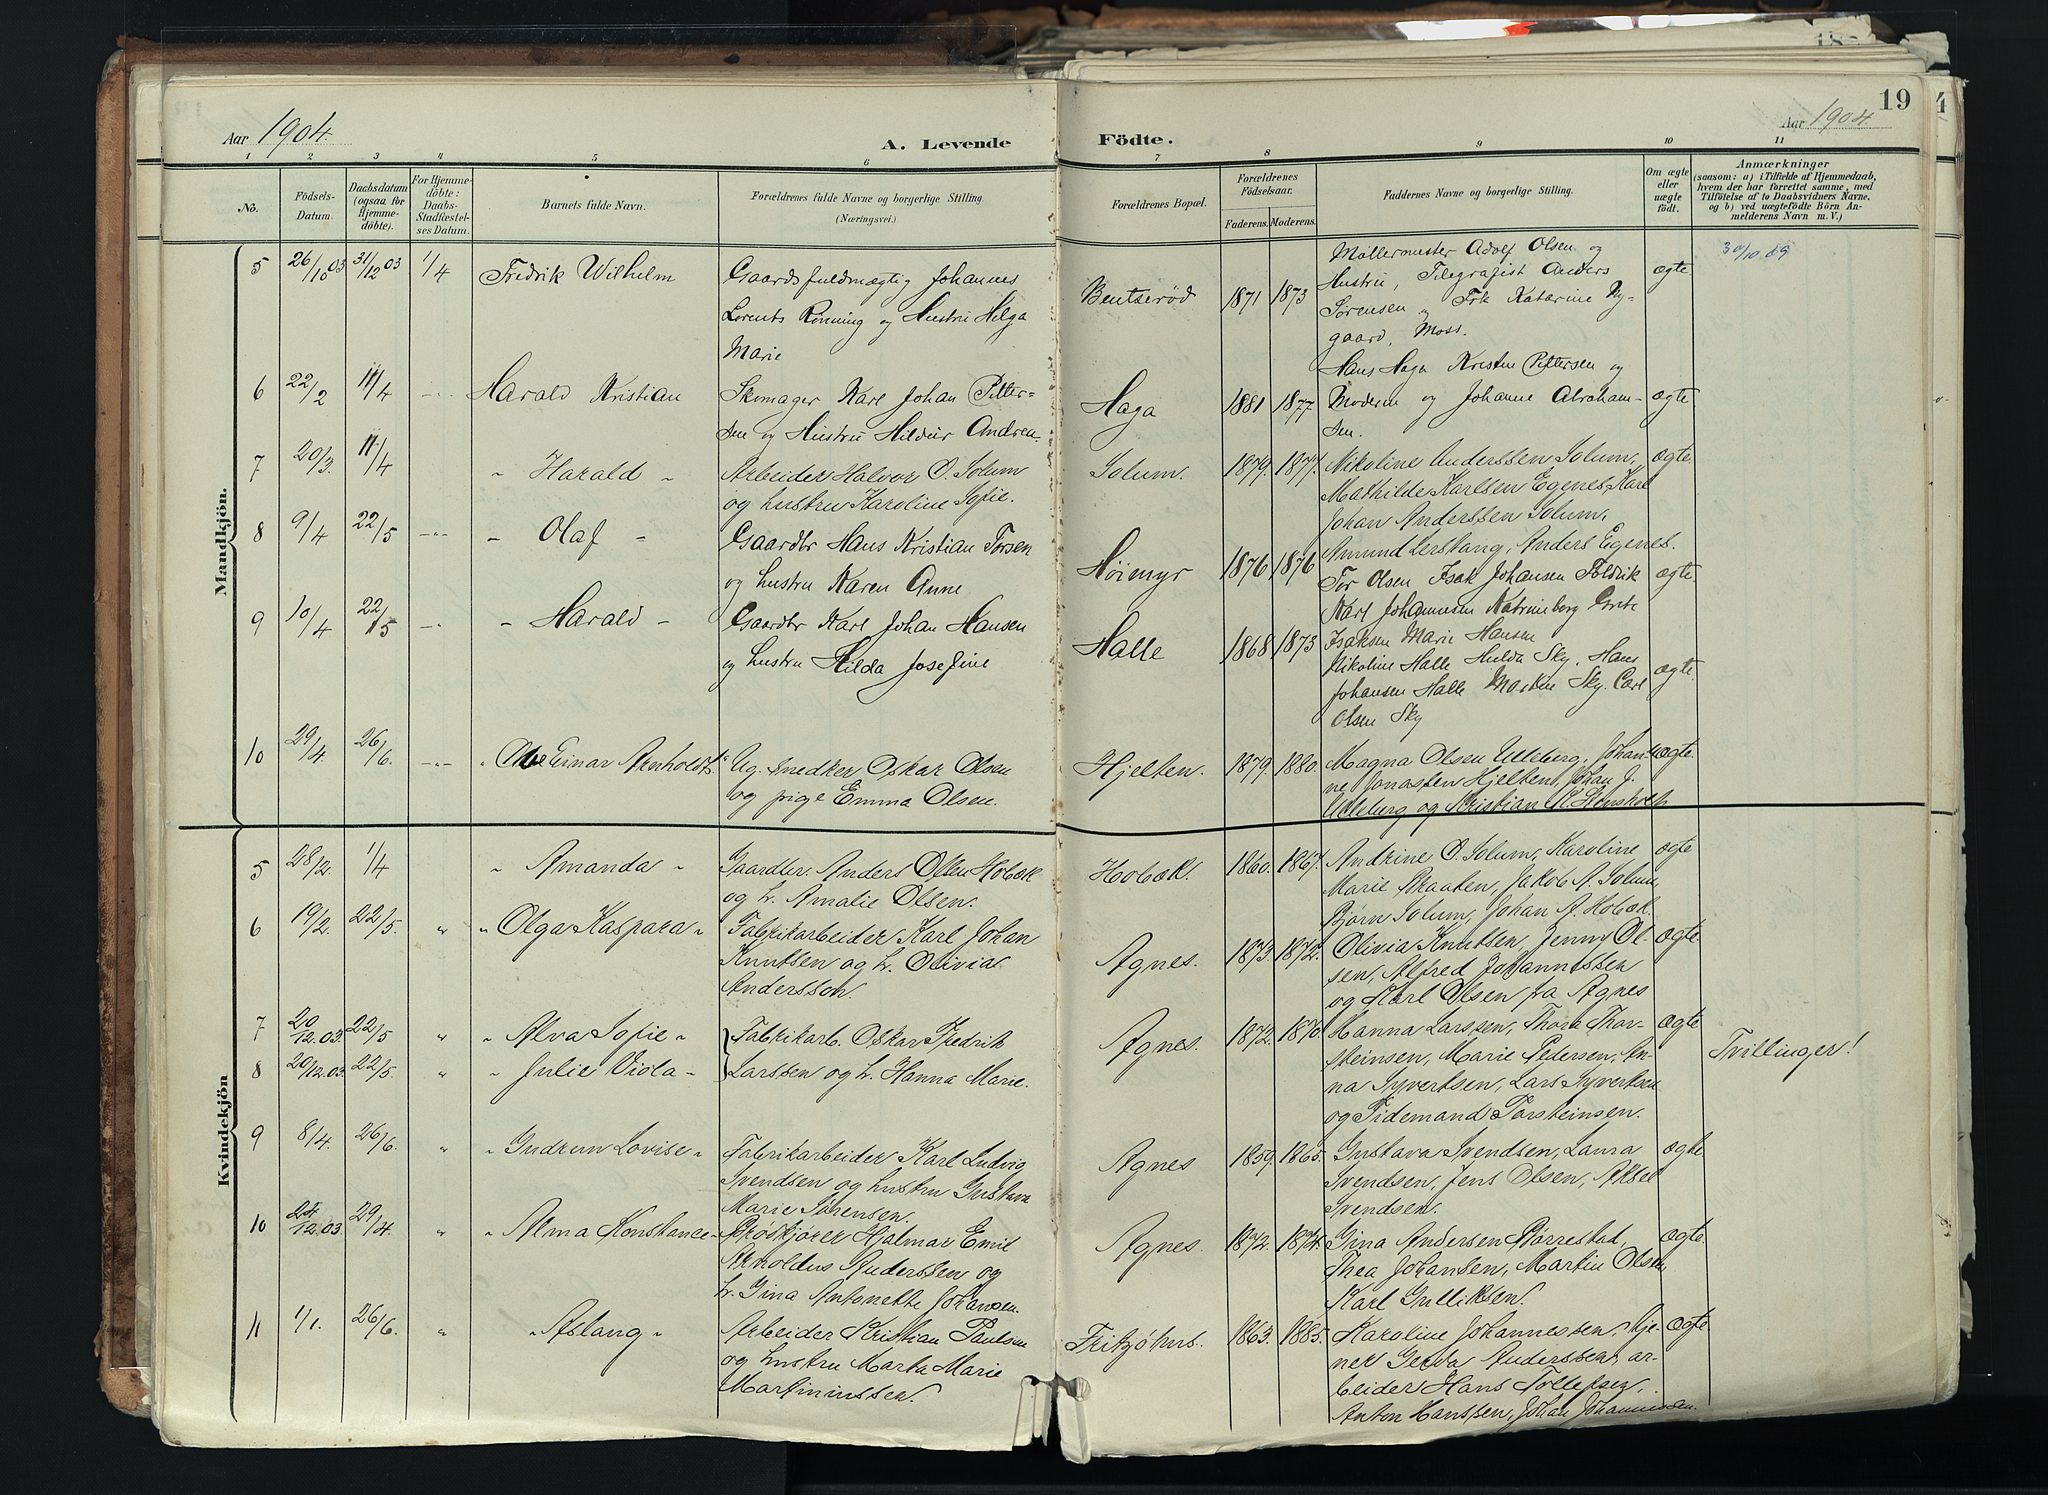 Aar 1904.
A. Levende Födte.
Aar 1904.
19
1 2 3 4 5 6 7 8 9 10 11
No.
Födsels-Datum.
Daabsdatum (ogsaa for Hjemmedöbte).
For Hjemmedöbte: Daabs-Stadfæstelses Datum.
Barnets fulde Navn.
Forældrenes fulde Navne og borgerlige Stilling. (Næringsvei.)
Forældrenes Bopæl.
Forældrenes Födselsaar.
Faderens. Moderens.
Faddernes Navne og borgerlige Stilling.
Om ægte eller uægte födt.
Anmærkninger
(saasom: a) i Tilfælde af Hjemmedaab,
hvem der har forrettet samme, med
Tilföielse af to Daabsvidners Navne,
og b) ved uægtefödte Börn Anmelderens Navn m. V.)
Mandkjön.
5 26/10 03 31/12 03 1/4 Fredrik Wilhelm
Gaardsfuldmægtig Johannes
Lorents Rønning og Hustru Helga
Marie
Bentserød 1871 1873
Møllermester Adolf Olsen og
Hustru, Telegrafist Anders
Sørensen og Frk Katarine Ny-
gaard, Moss.
ægte
30/10.09
6 22/2 11/4 Harald Kristian
Skomager Karl Johan Petter-
sen og Hustru Hildur Andren.
Haga 1881 1877
Hans Haga Kristen Pettersen og
Moderen og Johanne Abraham-
sen.
ægte
7 20/3. 11/4 " Harald "
Arbeider Halvor O. Solum
og hustru Karoline Sofie.
Solum. 1879. 1877.
Nikoline Anderssen Solum,
Mathilde Karlsen Egenes, Karl
Johan Anderssen Solum,
ægte.
8 9/4 22/5 " Olaf "
Gaardbr Hans Kristian Torsen
og hustru Karen Anne
Höimyr 1876 1876
Amund Lerstang, Anders Egenes.
Tor Olsen Isak Johansen Foldvik
Karl Johannesen Katrineborg Grete
Isaksen Marie Hansen
ægte.
9 10/4 22/5 " Harald "
Gaardbr Karl Johan Hansen
og hustru Hilda Josefine
Halle 1868 1873
Nikoline Halle Hulda Sky, Hans
Johansen Halle Martin Sky. Carl
Olsen Sky
ægte.
10 29/4 26/6. " Einar Arnholdt "
Ug. snedker Oskar Olsen
og pige Emma Olsen.
Hjelten. 1879. 1880.
Magna Olsen Ulleberg, Johan-
ne Jonassen Hjelten, Johan J.
Ulleberg og Kristian
uægte.
Kvindekjön
5 28/2. 1/4 " Amanda "
Gaardbr. Anders Olsen Hobæk
og h. Amalie Olsen.
Hobæk. 1860. 1867.
Andrine O. Solum, Karoline
Marie Braaten, Jakob A. Solum,
Bjørn Solum, Johan A. Hobæk.
ægte
6 19/2. 22/5. " " Olga Kaspara "
Fabrikarbeider Karl Johan
Knutsen og h. Olivia
Andersson.
Agnes. 1873. 1872.
Olivia Knutsen, Jenny Ol-
sen, Alfred Johannessen
og Karl Olsen fra Agnes
ægte.
7 20/12.03. 22/5 " " Alva Sofie "
8 20/12.03. 22/5. " " Julie Viola "
Fabrikarb. Oskar Fredrik
Larssen og h. Hanna Marie.
Agnes. 1872. 1870.
Hanna Larssen, Thora Thor-
steinsen, Marie Pedersen, An-
na Syvertsen, Lars Syvertsen
og Tidemand Torsteinsen.
ægte
Tvillinger!
9 8/4. 26/6. " " Gudrun Lovise "
Fabrikarbeider Karl Ludvig
Svendsen og hustru Gustava
Marie Sørensen.
Agnes 1859. 1865.
Gustava Svendsen, Laura
Svendsen, Jens Olsen, Aksel
Svendsen.
ægte
10 24/12.03. 29/4. " " Alma Konstance "
Hjalmar Emil
Arnoldus Gudersen og
h. Gina Antonette Johansen.
Agnes. 1872. 1874.
Gina Andersen Börrestad,
Thea Johansen, Martin Olsen,
Karl Gulliksen.
ægte.
11 1/1. 26/6. " " Aslaug "
Arbeider Kristian Paulsen
og hustru Marta Marie
Martininssen.
Fritzöhus. 1863. 1885.
Karoline Johannessen, tje-
ner Gerda Anderssen, ar-
beider Hans Tollefsen,
Anton Hanssen, Johan Johannessen.
ægte